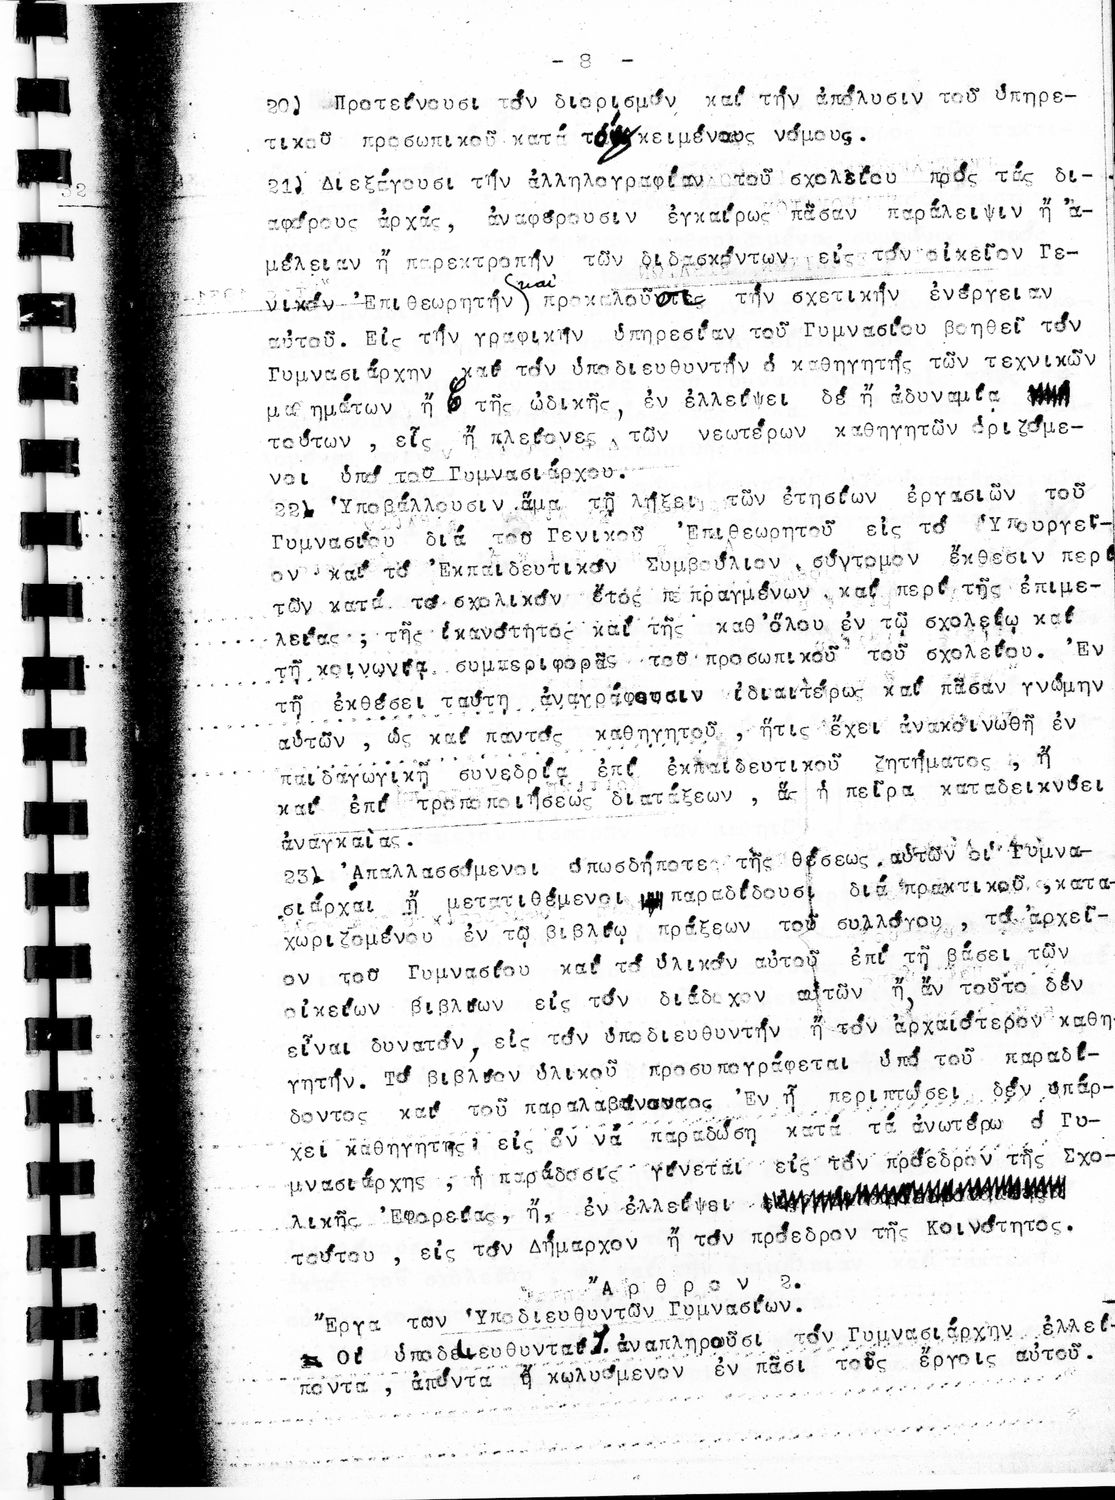 - 8 -
20) Προτείνουσι τόν διορισμόν καί τήν ἀπόλυσιν τοῦ ὑπηρε-
τικοῦ προσωπικοῦ κατά τούς κειμένους νόμους.
21) Διεξάγουσι τήν ἀλληλογραφίαν τοῦ σχολείου πρός τάς δι-
αφόρους ἀρχάς, ἀναφέρουσιν ἐγκαίρως πᾶσαν παράλειψιν ἤ ἀ-
μέλειαν ἤ παρεκτροπήν τῶν διδασκόντων εἰς τόν οἰκεῖον Γε-
νικόν Ἐπιθεωρητήν καί προκαλοῦσι τήν σχετικήν ἐνέργειαν
αὐτοῦ. Εἰς τήν γραφικήν ὑπηρεσίαν τοῦ Γυμνασίου βοηθεῖ τόν
Γυμνασιάρχην καί τόν ὑποδιευθυντήν ὁ καθηγητής τῶν τεχνικῶν
μαθημάτων ἤ ὁ τῆς ὠδικῆς, ἐν ἐλλείψει δέ ἤ ἀδυναμίᾳ
τούτων , εἷς ἤ πλείονες τῶν νεωτέρων καθηγητῶν ὁριζόμε-
νοι ὑπό τοῦ Γυμνασιάρχου.
22) Ὑποβάλλουσιν ἅμα τῇ λήξει τῶν ἐτησίων ἐργασιῶν τοῦ
Γυμνασίου διά τοῦ Γενικοῦ Ἐπιθεωρητοῦ εἰς τό Ὑπουργεῖ-
ον καί τό Ἐκπαιδευτικόν Συμβούλιον σύντομον ἔκθεσιν περί
τῶν κατά τό σχολικόν ἔτος πεπραγμένων καί περί τῆς ἐπιμε-
λείας , τῆς ἱκανότητος καί τῆς καθ'ὅλου ἐν τῷ σχολείῳ καί
τῇ κοινωνίᾳ συμπεριφορᾶς τοῦ προσωπικοῦ τοῦ σχολείου. Ἐν
τῇ ἐκθέσει ταύτῃ ἀναγράφουσιν ἰδιαιτέρως καί πᾶσαν γνώμην
αὐτῶν , ὡς καί παντός καθηγητοῦ , ἥτις ἔχει ἀνακοινωθῆ ἐν
παιδαγωγικῇ συνεδρίᾳ ἐπί ἐκπαιδευτικοῦ ζητήματος , ἤ
καί ἐπί τροποποιήσεως διατάξεων , ἅς ἡ πεῖρα καταδεικνύει
ἀναγκαίας.
23) Ἀπαλλασσόμενοι ὁπωσδήποτε τῆς θέσεως αὐτῶν οἱ Γυμνα-
σιάρχαι ἤ μετατιθέμενοι παραδίδουσι διά πρακτικοῦ , κατα-
χωριζομένου ἐν τῷ βιβλίῳ πράξεων τοῦ συλλόγου , τό ἀρχεῖ-
ον τοῦ Γυμνασίου καί τό ὑλικόν αὐτοῦ ἐπί τῇ βάσει τῶν
οἰκείων βιβλίων εἰς τόν διάδοχον αὐτῶν ἤ, ἄν τοῦτο δέν
εἶναι δυνατόν, εἰς τόν ὑποδιευθυντήν ἤ τόν ἀρχαιότερον καθη-
γητήν. Τό βιβλίον ὑλικοῦ προσυπογράφεται ὑπό τοῦ παραδί-
δοντος καί τοῦ παραλαβόντος. Ἐν ᾗ περιπτώσει δέν ὑπάρ-
χει καθηγητής, εἰς ὅν νά παραδώσῃ κατά τά ἀνωτέρω ὁ Γυ-
μνασιάρχης , ἡ παράδοσις γίνεται εἰς τόν πρόεδρον τῆς Σχο-
λικῆς Ἐφορείας, ἤ, ἐν ἐλλείψει
τούτου , εἰς τόν Δήμαρχον ἤ τόν πρόεδρον τῆς Κοινότητος.
Ἄρθρον 2.
Ἔργα των Ὑποδιευθυντῶν Γυμνασίων.
Οἱ ὑποδιευθυνταί ἀναπληροῦσι τόν Γυμνασιάρχην ἐλλεί-
ποντα , ἀπόντα ἤ κωλυόμενον ἐν πᾶσι τοῖς ἔργοις αὐτοῦ.